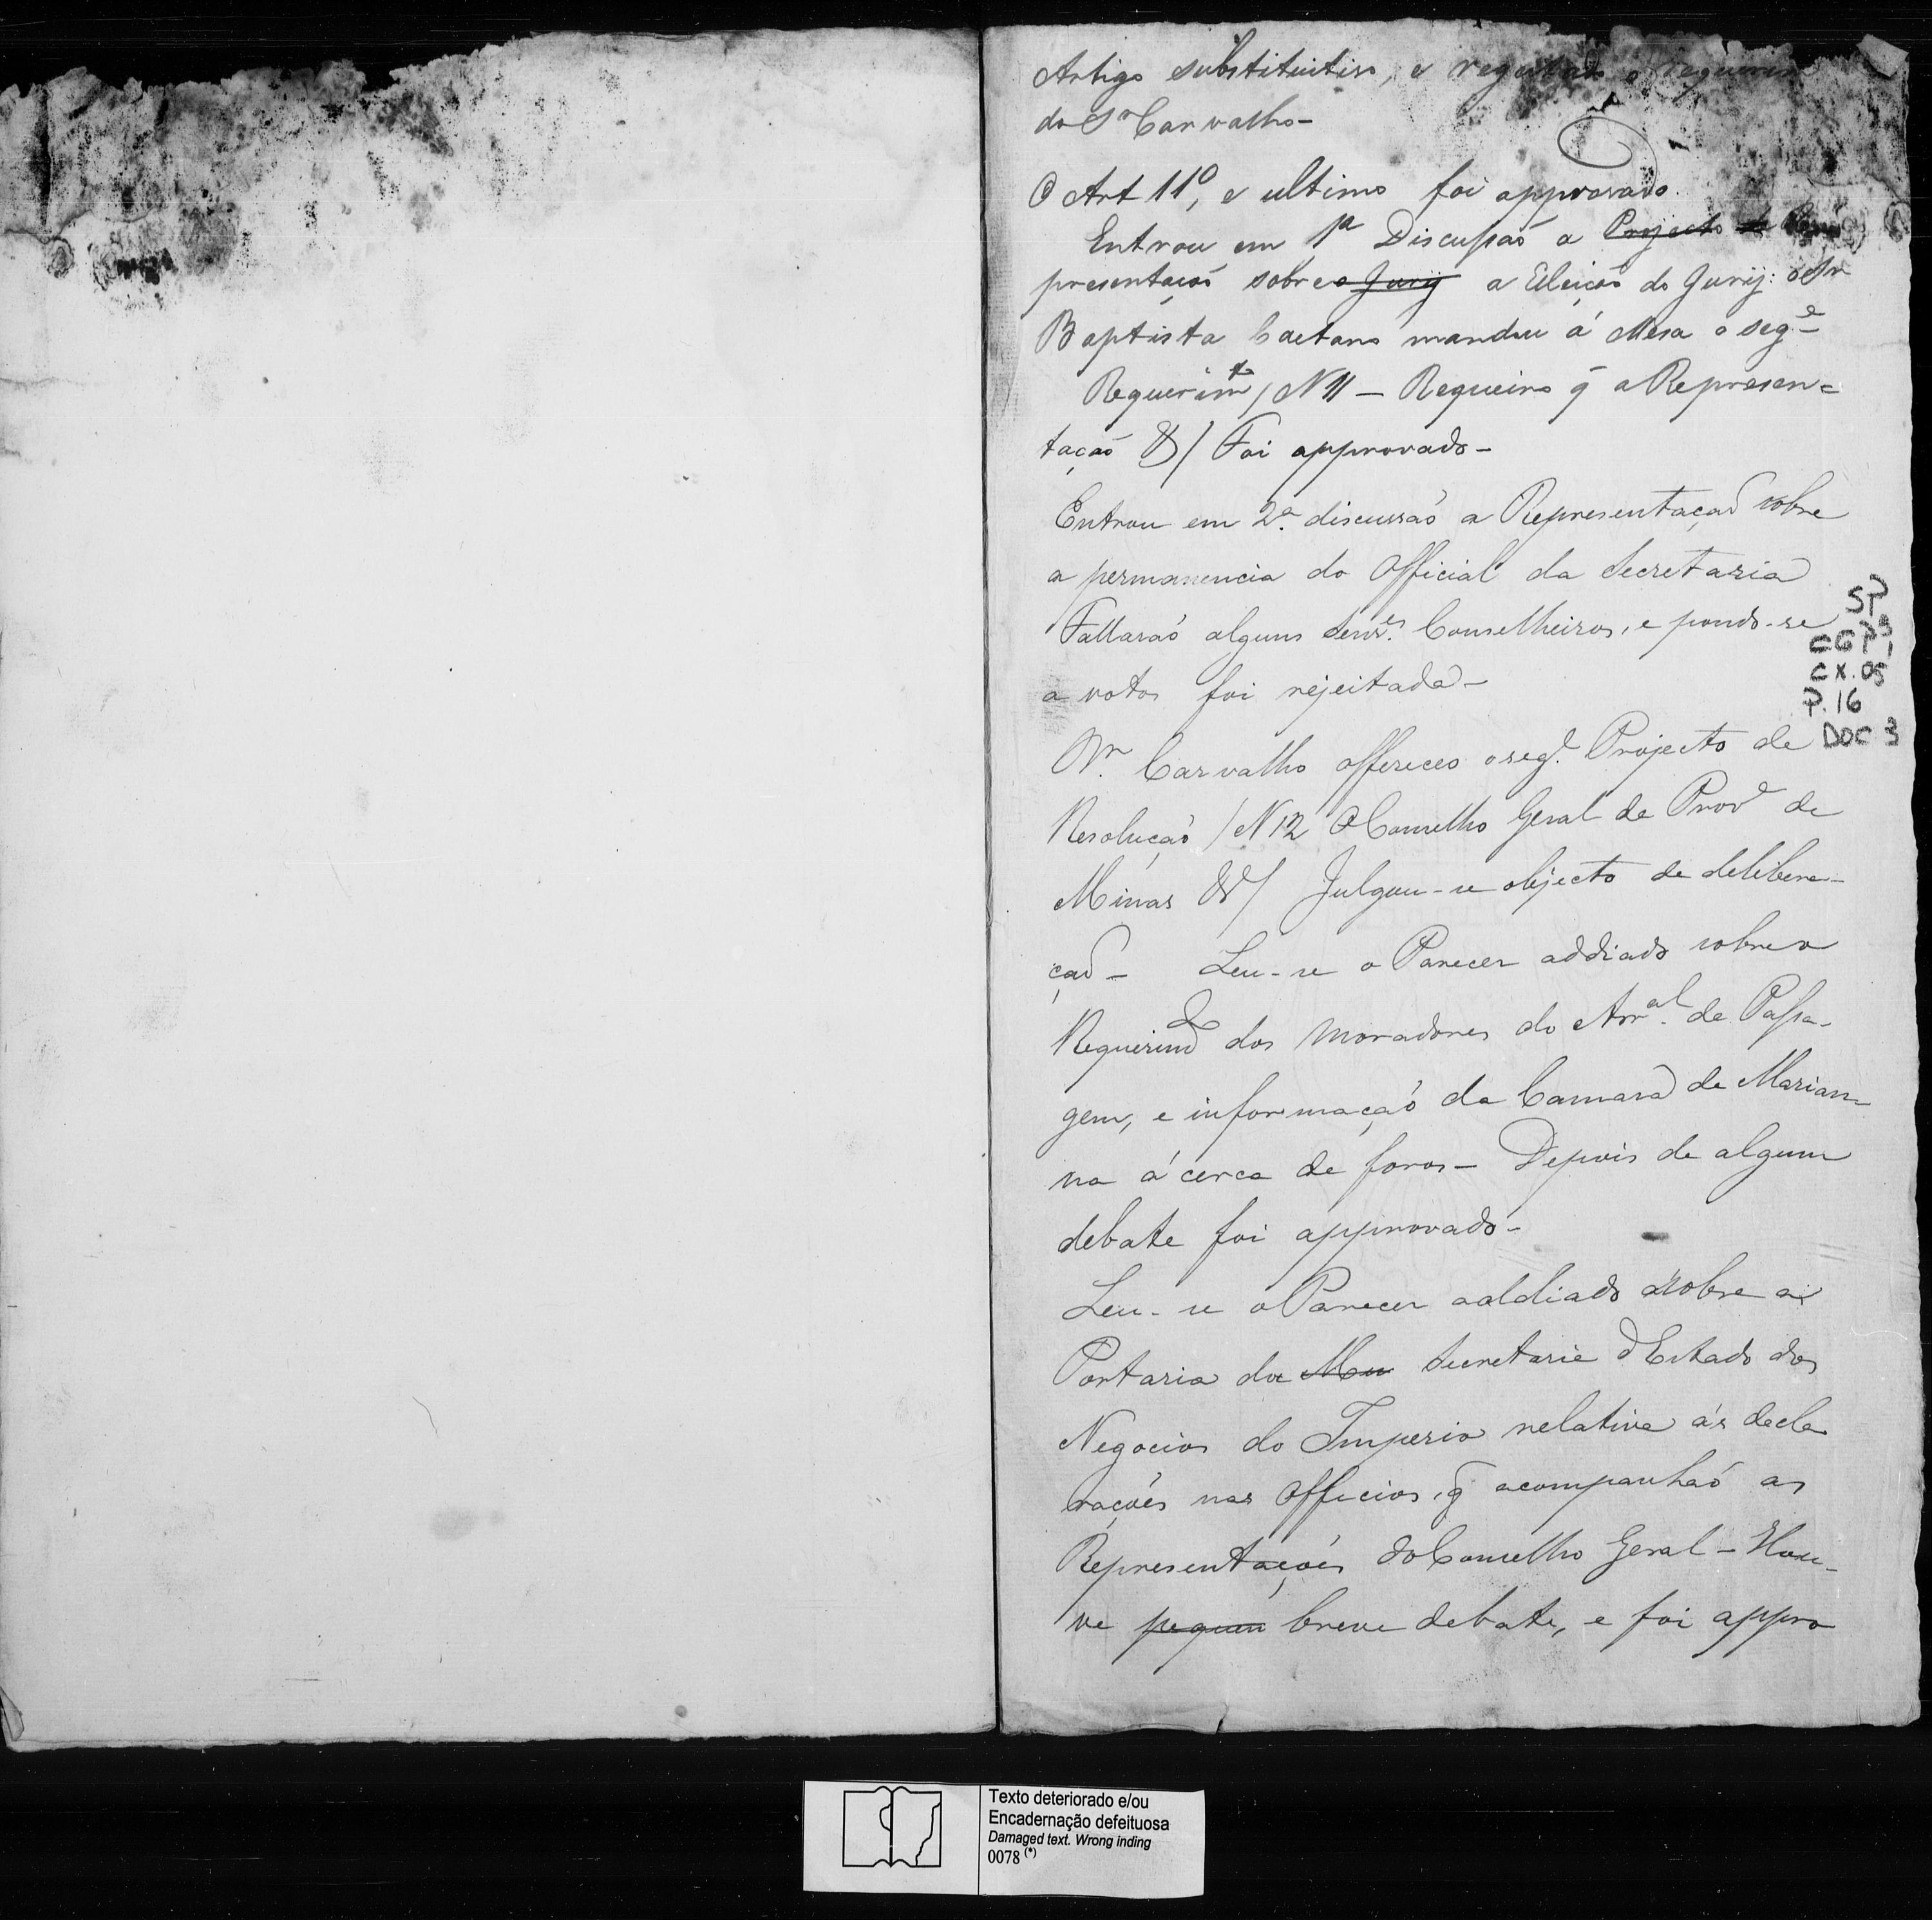 Artigo substitutivo, e regeitado o Requerim
do Sr Carvalho-
O Art 11º, e ultimo foi approvado.
Entrou em 1ª Discussaõ a Projecto de Re
presentaçaõ sobre o Jury a Eleiçaõ do Jury: o Sr
Baptista Caetano mandou á Mesa o segᵉ
Requerimᵗᵒ / N 11 - Requeiro q̃ a Represen=
taçaõ &/ Foi approvado-
Entrou em 2ª discussaõ a Representaçaõ sobre
a permanencia do Official da Secretaria
Fallaraõ alguns Senrᵉˢ Conselheiros, e pondo-se
a votos foi rejeitada-
O Sr. Carvalho offereceo o segᵉ Projecto de
Resoluçaõ / N 12 O Conselho Geral de Provᵃ de
Minas &/ Julgou-se objecto de delibera-
çaõ - Leu-se o Parecer addiado sobre o
Requerimᵗᵒ dos moradores do Arrᵃˡ de Passa-
gem, e informaçaõ da Camara de Marian-
na á cerca de foros - Depois de algum
debate foi approvado-
Leu-se o Parecer addiado sobre a
Portaria da Mu Secretaria d'Estado dos
Negocios do Imperio relativa ás decla
raçoẽs nas officios, q̃ acompanhaõ as
Representaçoẽs do Conselho Geral - Hou-
ve pequen breve debate, e foi appro
SP
CGP¹
CX.05
P.16
DOC 3
Texto deteriorado e/ou
Encadernação defeituosa
Damaged text. Wrong inding
0078 (*)